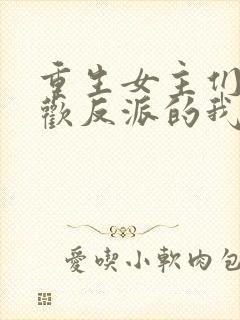 重生女主们
歡反派的我
愛喫小軟肉包